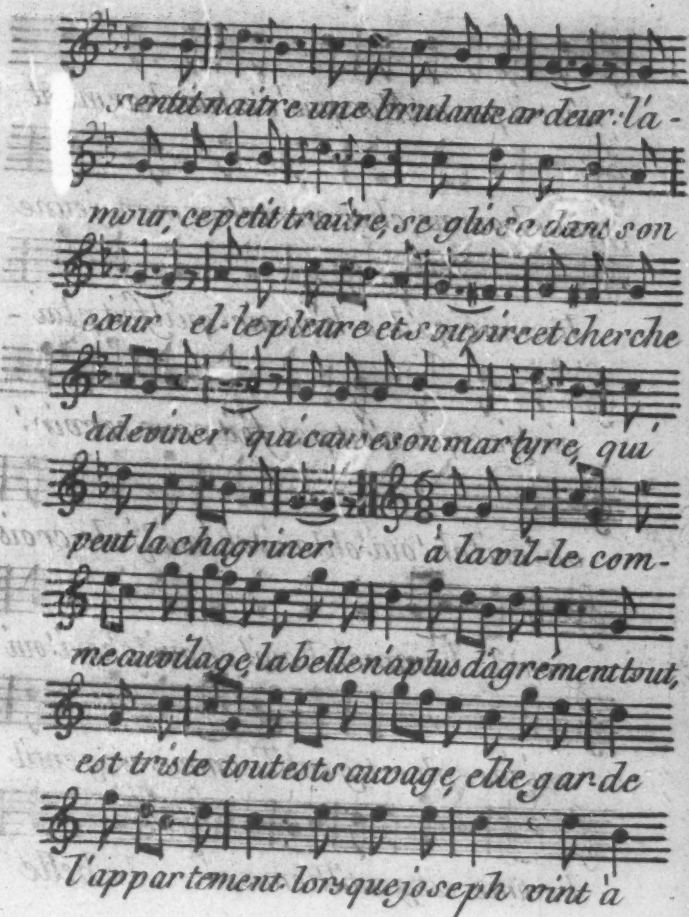 sentit naitre une brulante ardeur: l'a-
mour, ce petit traître, se glissa dans son
cœur el-le pleure et soupire et cherche
a deviner qui cause son martyre, qui
peut la chagriner à la vil-le com-
6
8
me au vilage, la belle n'a plus d'agrément tout,
est triste tout est sauvage, elle gar-de
l'appartement lorsque joseph vint à